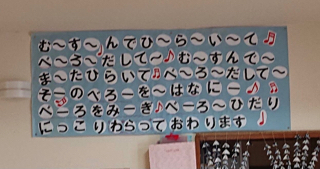 む～す～んでひ～ら～い～て♬
べ～ろ～だして～♪む～すんで～
ま～たひらいて♬べ～ろ～だして～
そーのべろーを～はなにー♪♬
べーろをみーぎ♪べーろ～ひだり
にっこりわらっておわります♩